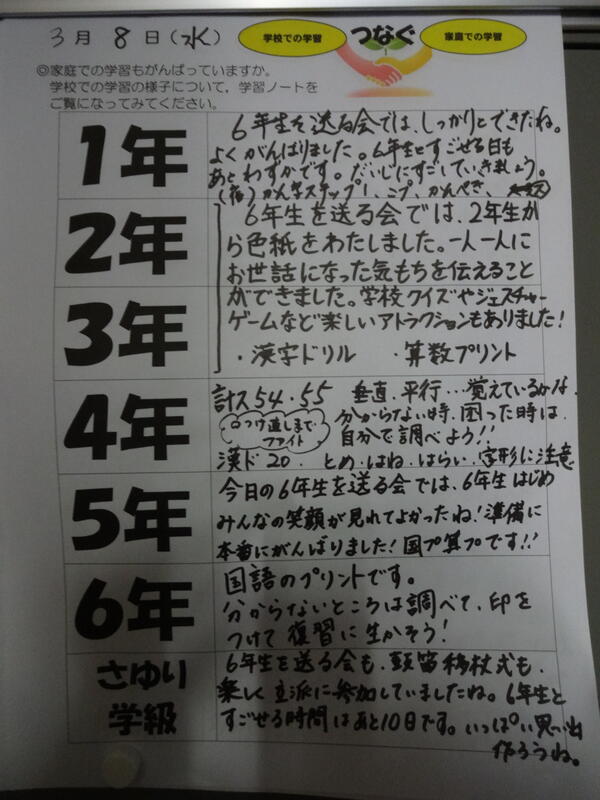 3月8日(水)
学校での学習
つなぐ
家庭での学習
◎家庭での学習もがんばっていますか。
学校での学習の様子について、学習ノートを
ご覧になってみてください。
1年
6年生を送る会では、しっかりとできたね。
よくがんばりました。6年生とすごせる日も
あとわずかです。だいじにすごしていきましょう。
(宿)かん字ステップ1、こプ、かんぺき、
2年
6年生を送る会では、2年生か
ら色紙をわたしました。一人一人に
お世話になった気もちを伝えること
3年
ができました。学校クイズやジェスチャー
ゲームなど楽しいアトラクションもありました!
・漢字ドリル ・算数プリント
4年
計ス54・55 垂直、平行…覚えているかな。
○つけ直しまで
ファイト
分からない時、困った時は、
自分で調べよう!!
漢ド20. とめ・はね・はらい、字形に注意
5年
今日の6年生を送る会では、6年生はじめ
みんなの笑顔が見れてよかったね!準備に
本番にがんばりました!国プ算プです!!
6年
国語のプリントです。
分からないところは調べて、印を
つけて復習に生かそう!
さゆり
学級
6年生を送る会も、鼓笛移杖式も、
楽しく立派に参加していましたね。6年生と
すごせる時間はあと10日です。いっぱい思い出
作ろうね。